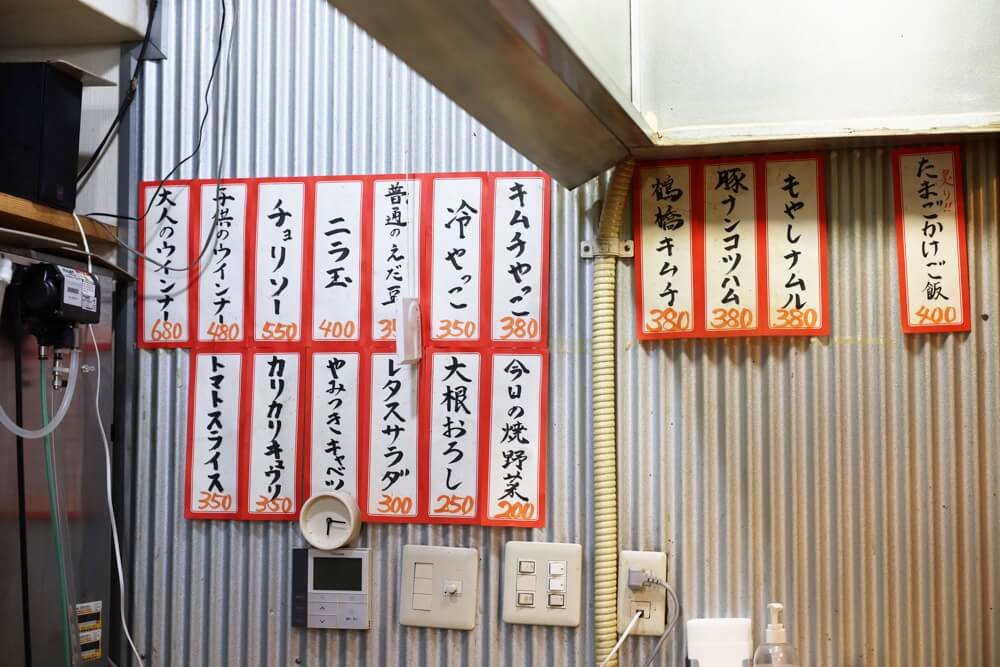 キムチやっこ
380
冷やっこ
350
普通のえだ豆
ニラ玉
400
チョリソー
550
子供のウインナー
480
大人のウインナー
680
今日の焼野菜
200
大根おろし
250
レタスサラダ
300
やみつきキャベツ
カリカリキュウリ
350
トマトスライス
350
もやしナムル
380
豚ナンコツハム
380
鶴橋キムチ
380
炙り!!
たまごかけご飯
400